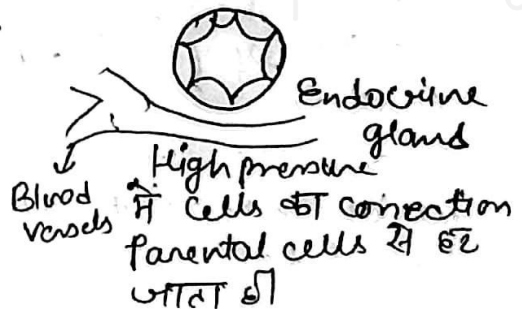 Endocrine
gland
Blood
vessels
High pressure
में cells का connection
Parental cells से हट
जाता है